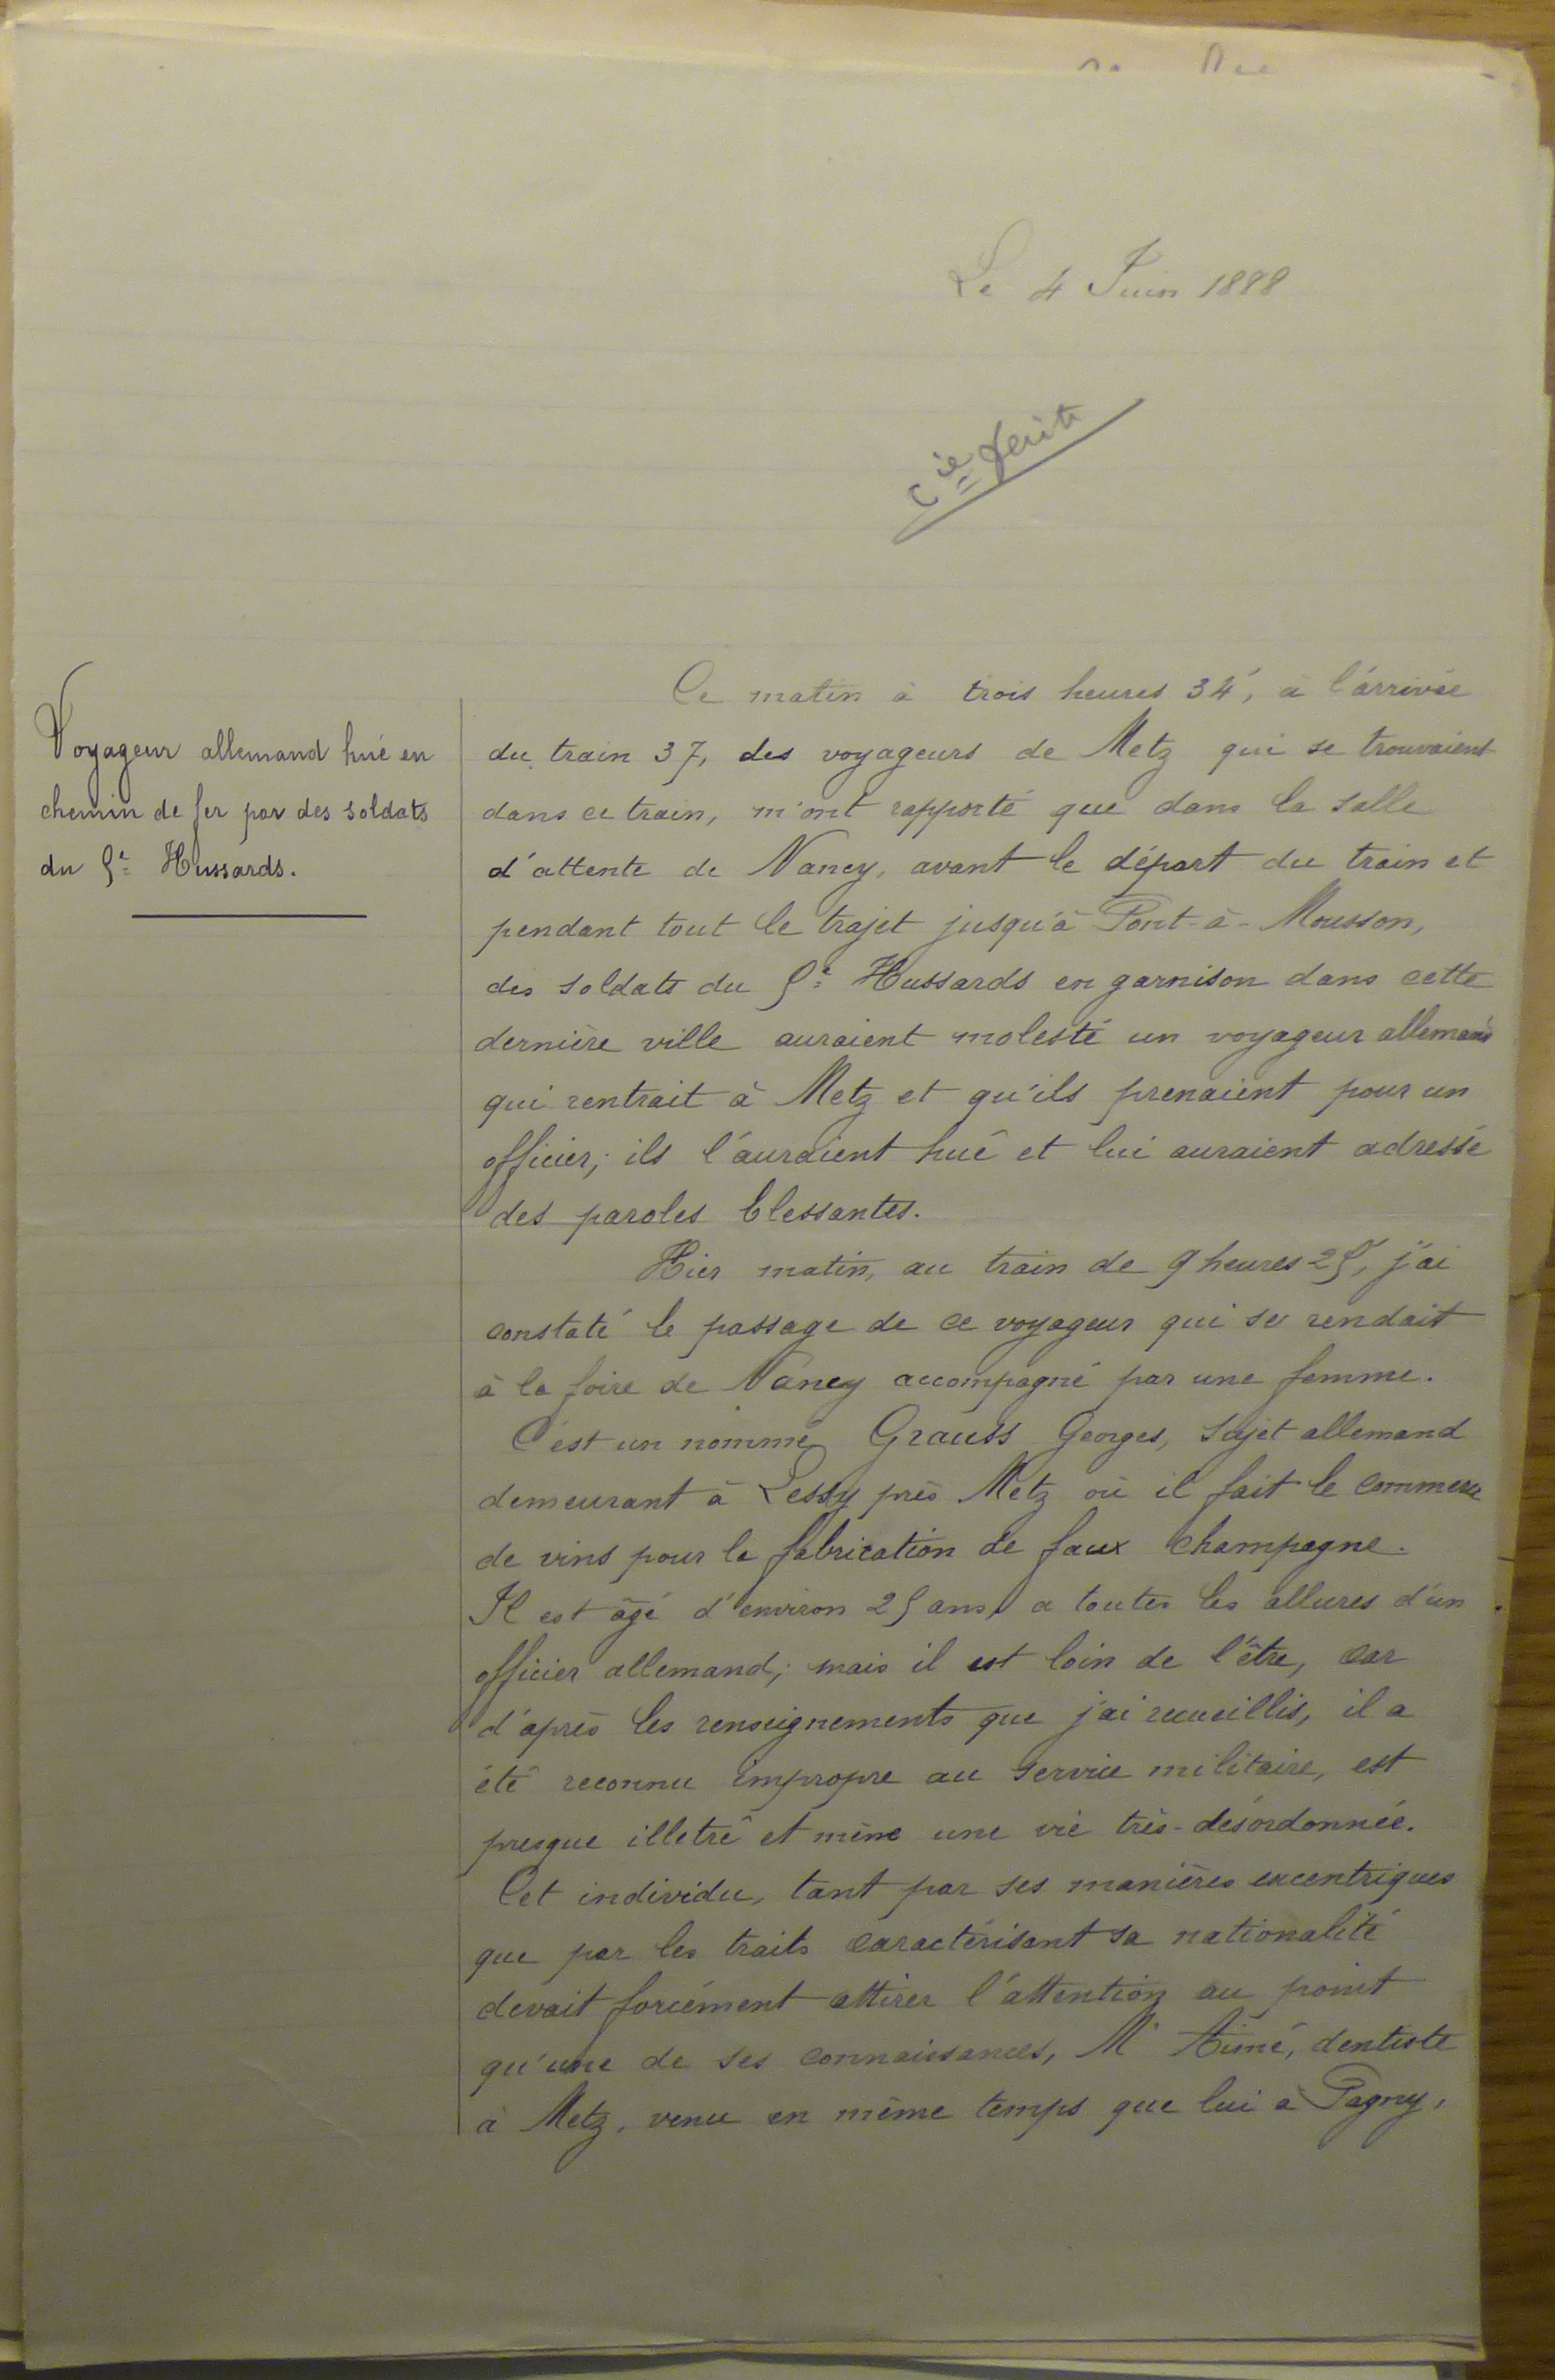 Le 4 Juin 1888
C ie
Voyageur allemand hué en
chemin de fer par des soldats
du 5e Hussards.
Ce matin à trois heures 34', à l'arrivée
du train 37, des voyageurs de Metz qui se trouvaient
dans ce train, m'ont rapporté que dans la salle
d'attente de Nancy, avant le départ du train et
pendant tout le trajet jusqu'à Pont-à-Mousson,
des soldats du 5e Hussards en garnison dans cette
dernière ville auraient molesté un voyageur allemand
qui rentrait à Metz et qu'ils prenaient pour un
officier; ils l'auraient hué et lui auraient adressé
des paroles blessantes.
Hier matin, au train de 9 heures 25', j'ai
constaté le passage de ce voyageur qui se rendait
à la foire de Nancy accompagné par une femme.
C'est un nommé Grauss Georges, sujet allemand
demeurant à Lessy près Metz où il fait le commerce
de vins pour la fabrication de faux champagne.
Il est âgé d'environ 25 ans, a toutes les allures d'un
officier allemand; mais il est loin de l'être, car
d'après les renseignements que j'ai recueillis, il a
été reconnu impropre au service militaire, est
presque illetré et mène une vie très-désordonnée.
Cet individu, tant par ses manières excentriques
que par les traits caractérisant sa nationalité
devait forcément attirer l'attention au point
qu'une de ses connaissances, Mr Aimé, dentiste
à Metz, venu en même temps que lui à Pagny,